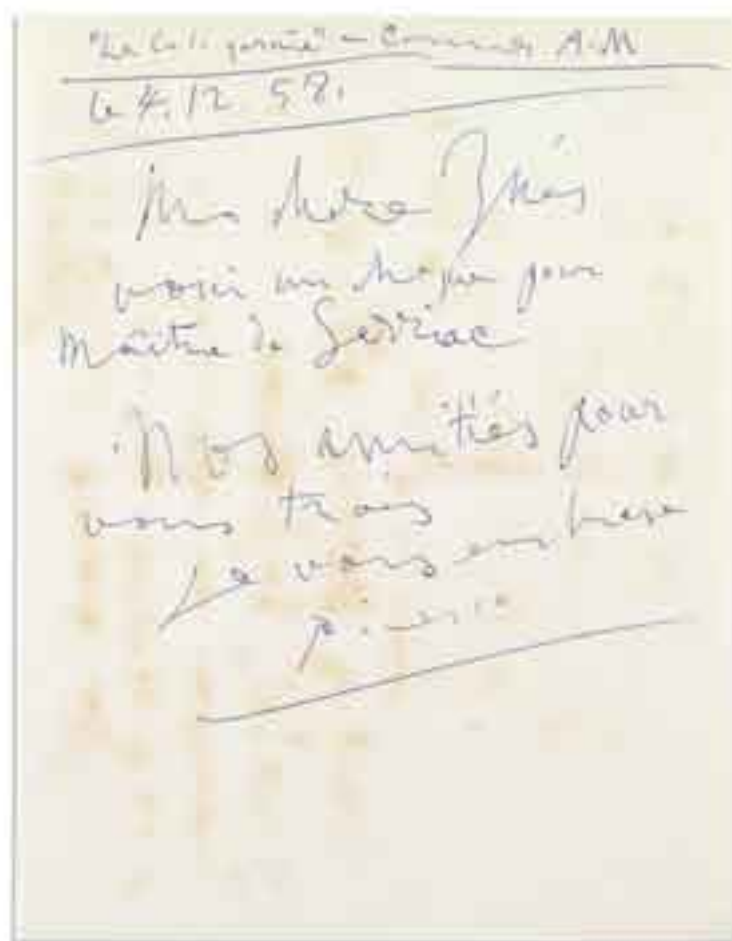 "La Californie" - Cannes A.M
le 4.12.58.
Ma chère Inès
voici un chèque pour
Maître de
Nos amitiés pour
vous trois
Je vous embrasse
Picasso